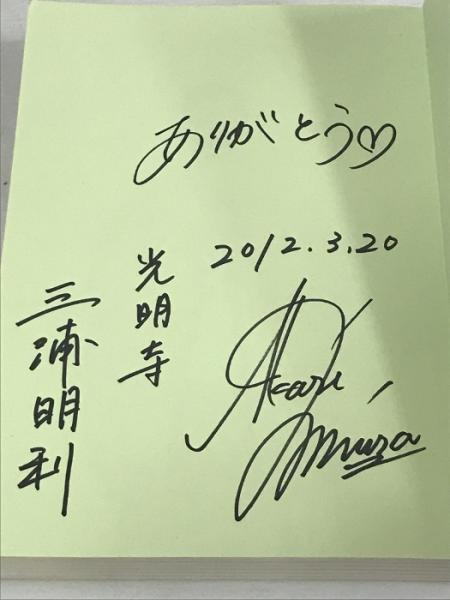 ありがとう♡
2012.3.20
光明寺
三浦明利
Akari Miura